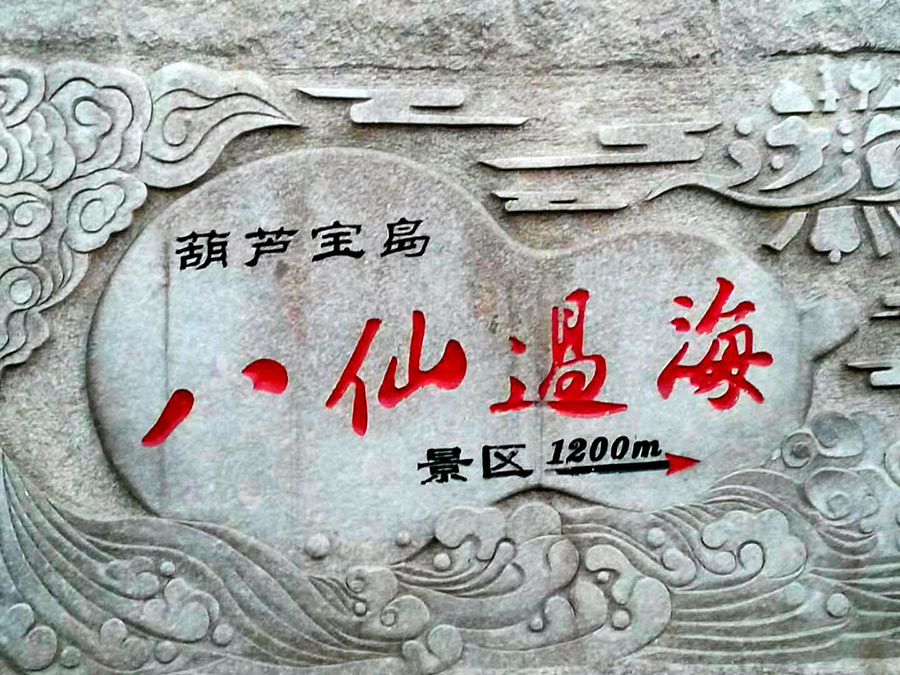 葫芦宝岛
八仙過海
景区 1200m